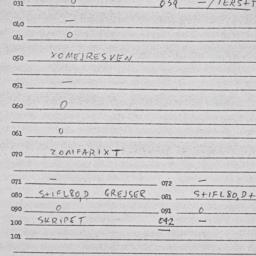 031 0 039 -/TERS+T
040 —
041 0
050 XOMEJRESVEN
051 —
060 0
061 0
070 ZOMFARIXT
071 — 072 —
080 S+IFL80,D GREJSER 081 S+IFL80,D+
090 0 091 0
100 SKRIPET 092 —
101